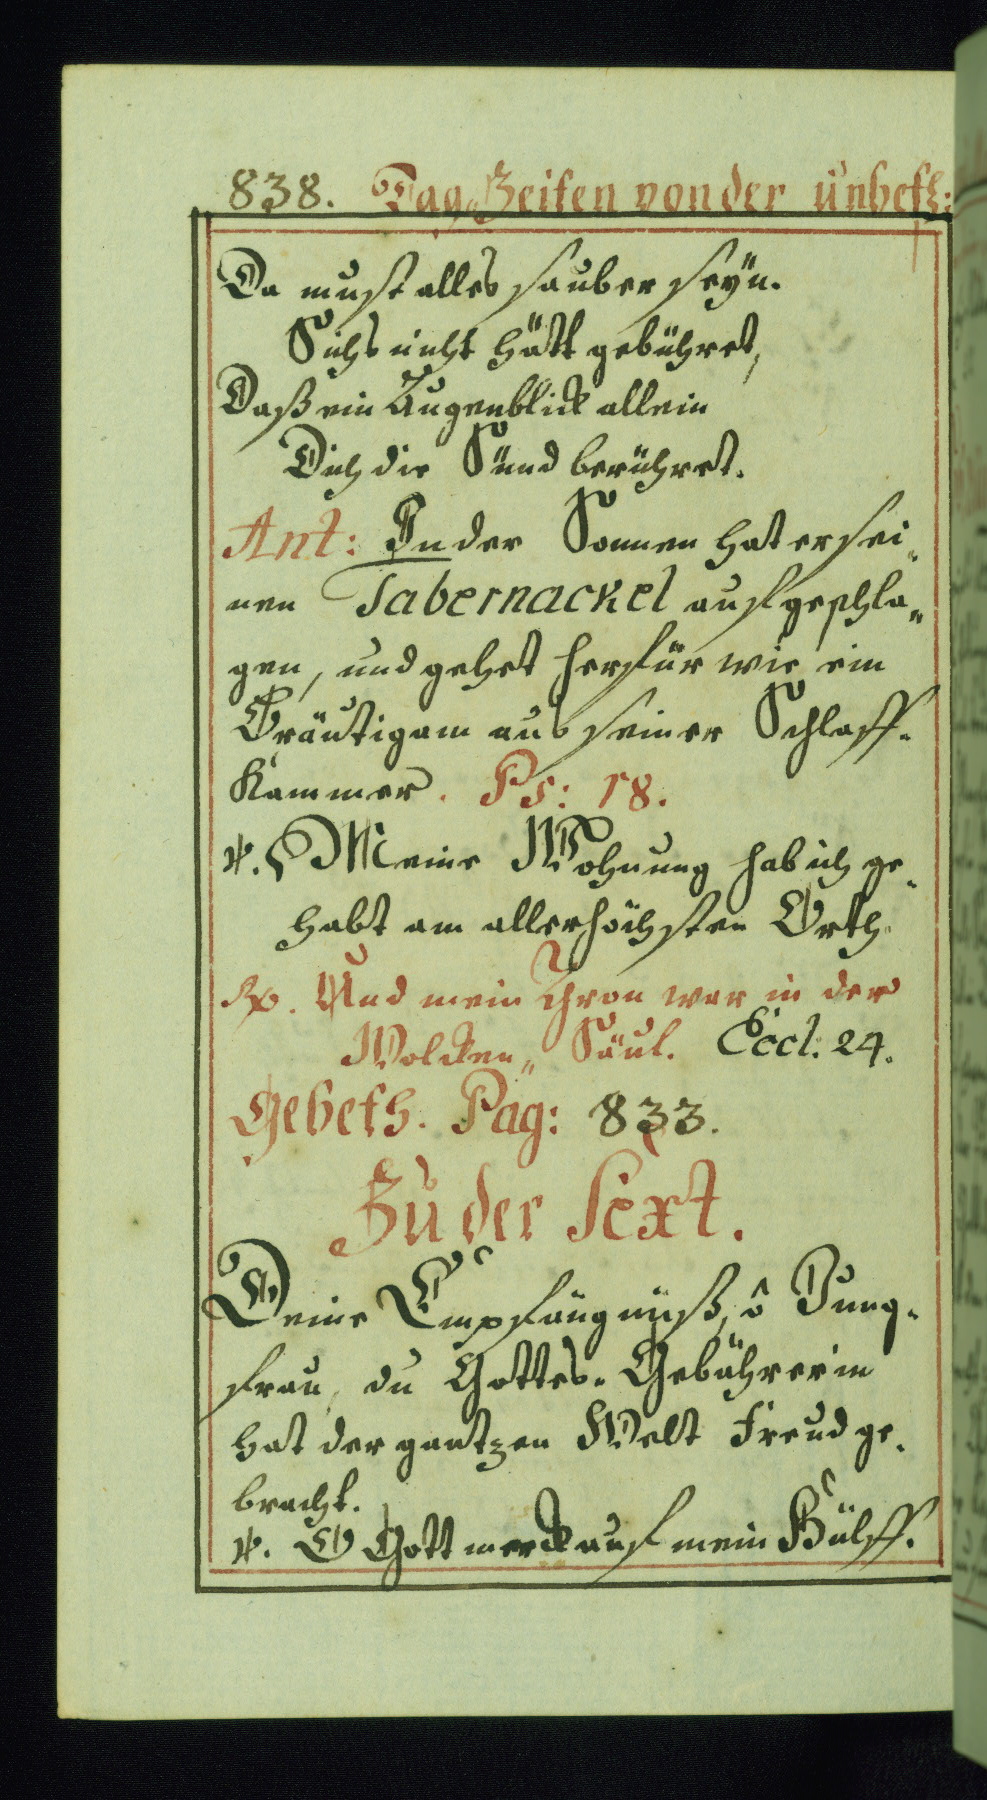 838. Tag-Zeiten von der unbefl:
Da must alles sauber seyn.
Sichs nicht hätt gebühret,
Daß ein Augenblick allein
Dich die Sünd berühret.
Ant: In der Sonnen hat er sei„
nen Tabernackel aufgeschla„
gen, und gehet herfür wie ein
Bräutigam aus seiner Schlaff-
Kammer. Ps: 18.
℣. Meine Wohnung hab ich ge„
habt am allerhöchsten Orth.
℟. Und mein Thron war in der
Wolcken„ Säul. Eccl. 24.
Gebeth. Pag: 833.
Zu der Sext.
Deine Empfängnüß, ô Jung-
frau, du Gottes-Gebährerin
hat der gantzen Welt Freud ge-
bracht.
℣. O Gott merck auf mein Hülff.